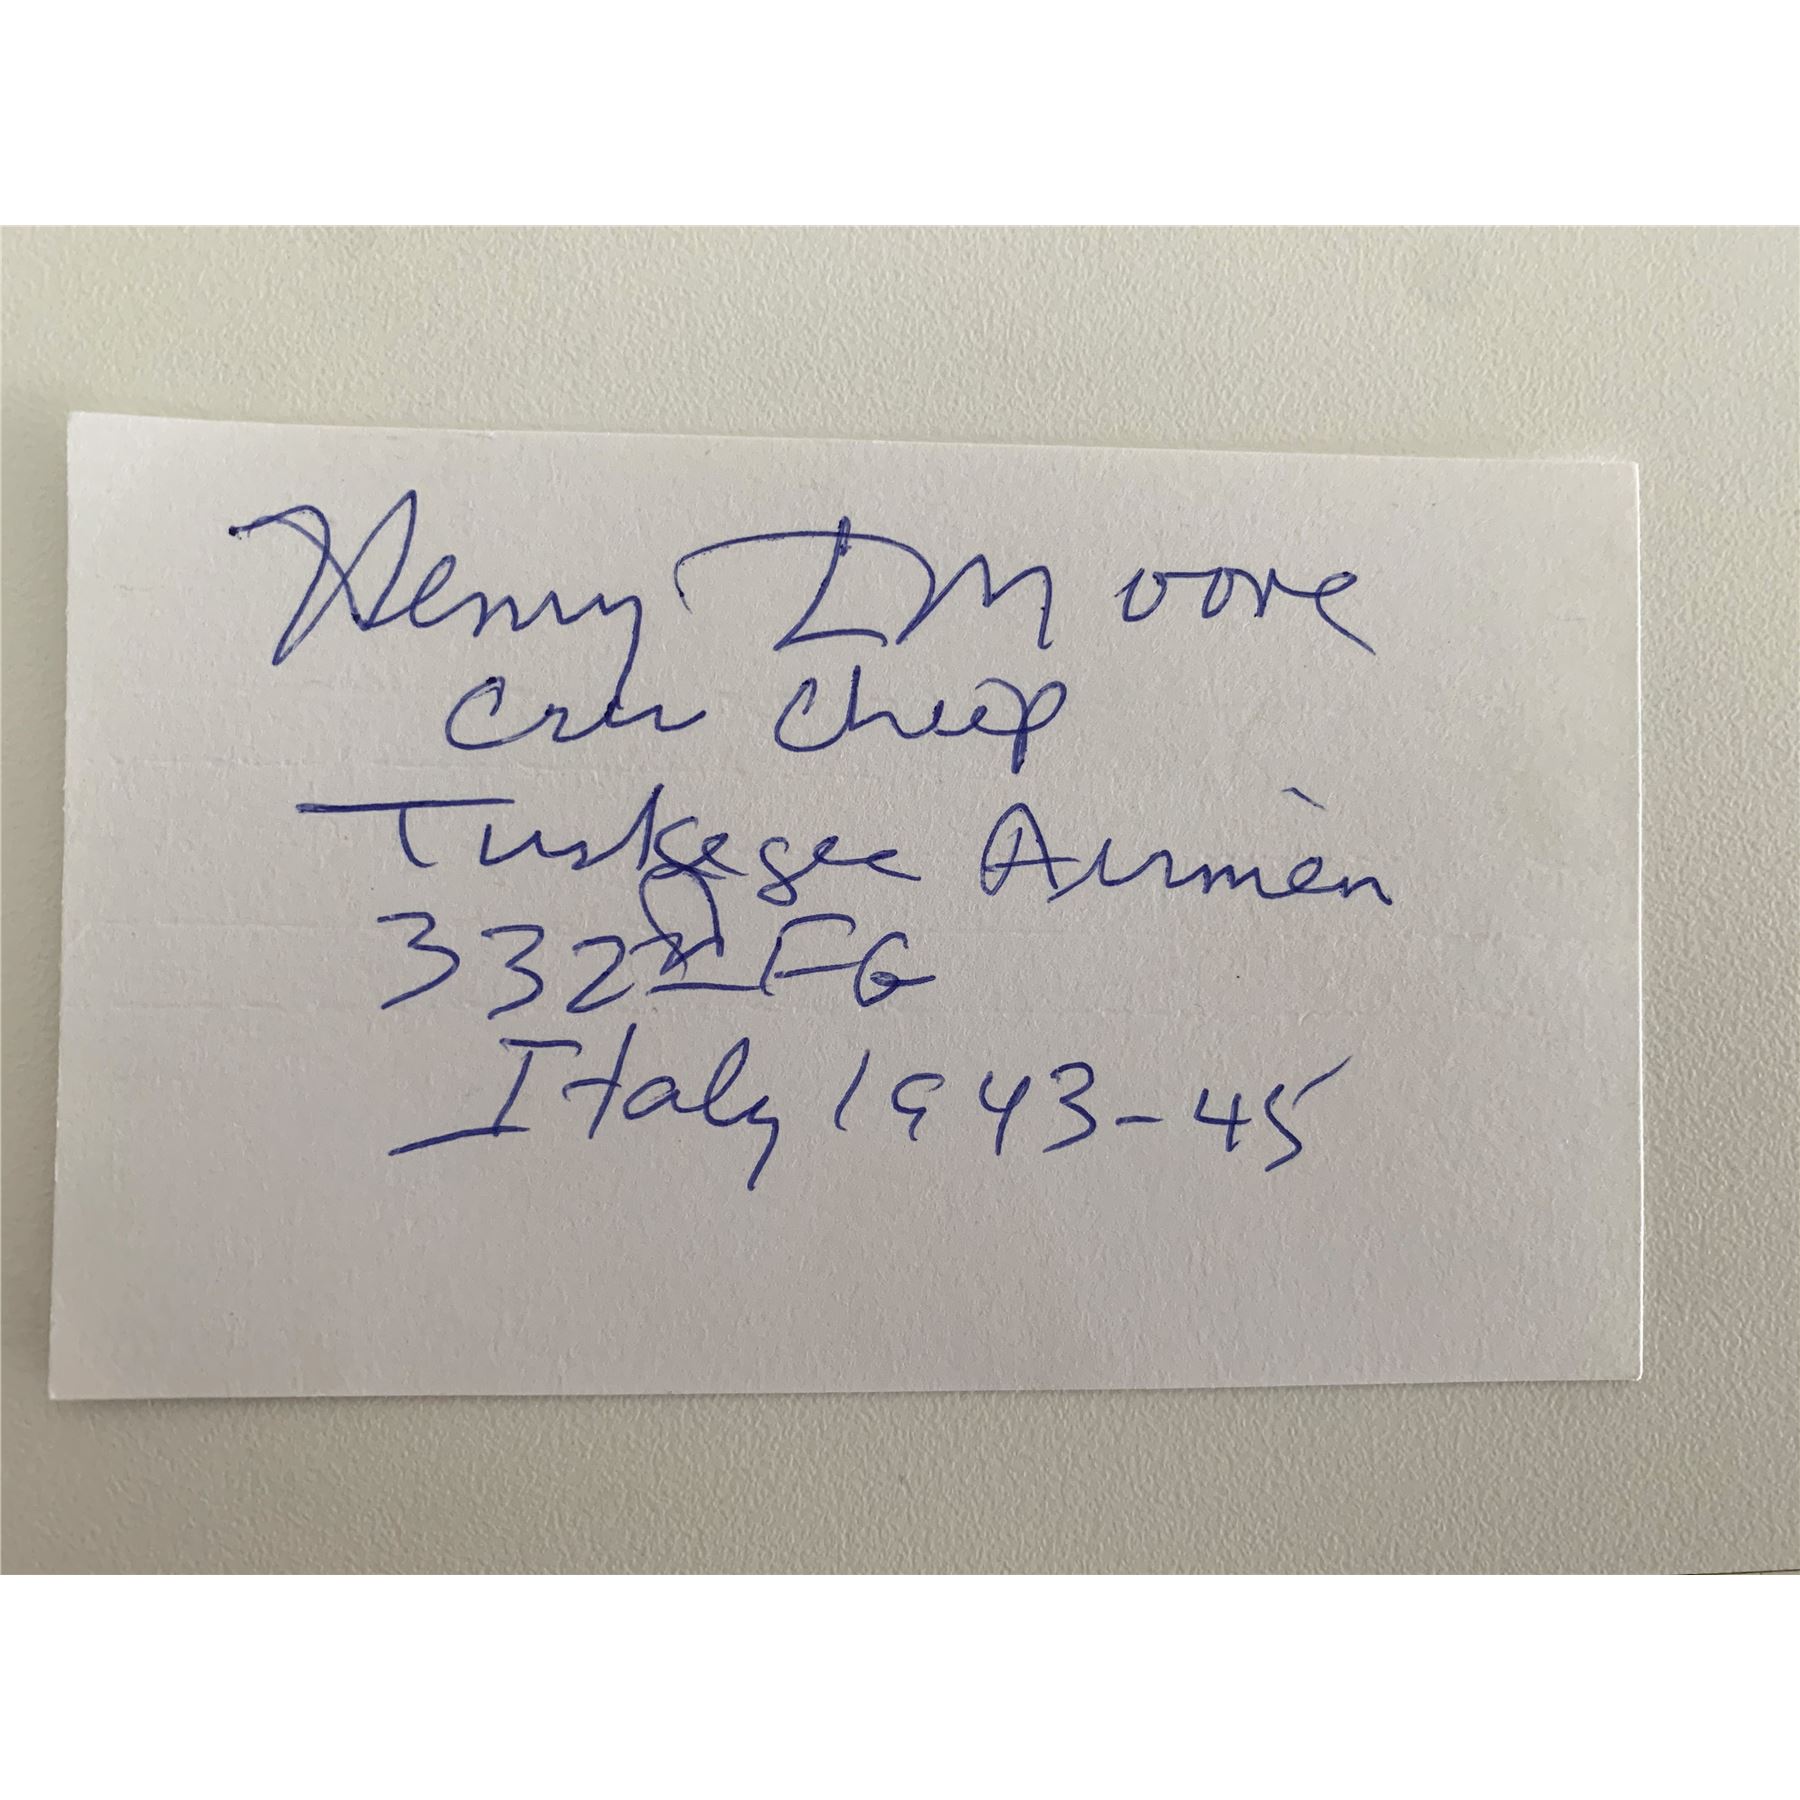 Henry L Moore
Crew Chief
Tuskegee Airmen
332nd FG
Italy 1943-45